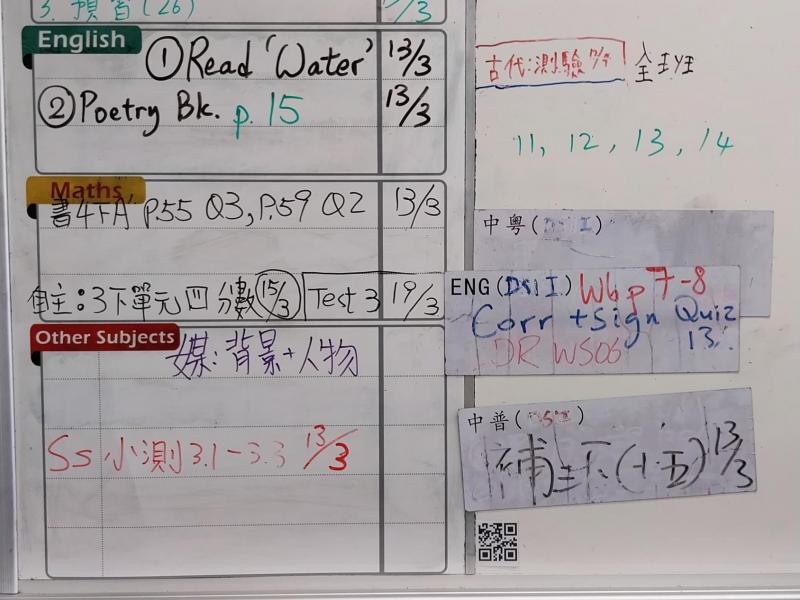 3. 預習(26)
English
① Read 'Water' 13/3
② Poetry Bk. p. 15 13/3
Maths
書4下A P.55 Q3, P.59 Q2 13/3
自主:3下單元四 分數 15/3 Test 3 19/3
Other Subjects
媒:背景+人物
Ss 小測 3.1-3.3 13/3
古代:測驗
11, 12, 13, 14
中粵(
ENG(DSI I.) Wb p 7-8
Corr + Sign Quiz
13.
DR WS06
中普(
補 三下(十五) 13/3